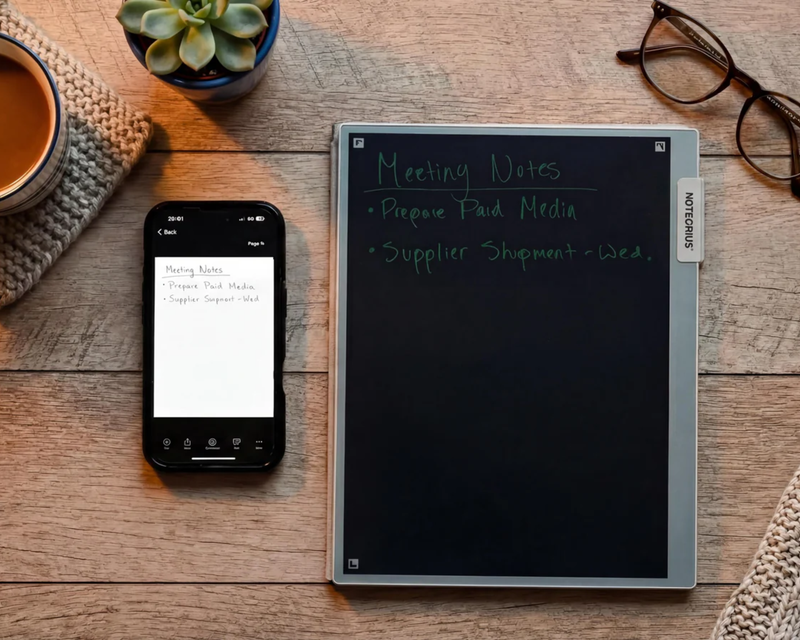 20:01
60
Back
Page
Meeting Notes
• Prepare Paid Media
• Supplier Surpnort - Wed
Meeting Notes
• Prepare Paid Media
• Supplier Shupment - Wed.
NOTEGRIUS